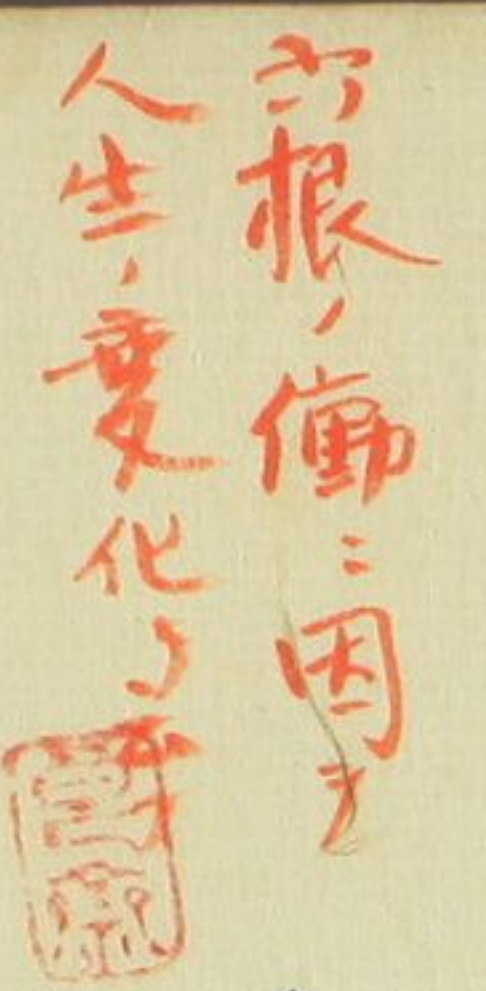 六根ノ働ニ因リ
人生ノ変化ヲ示ス